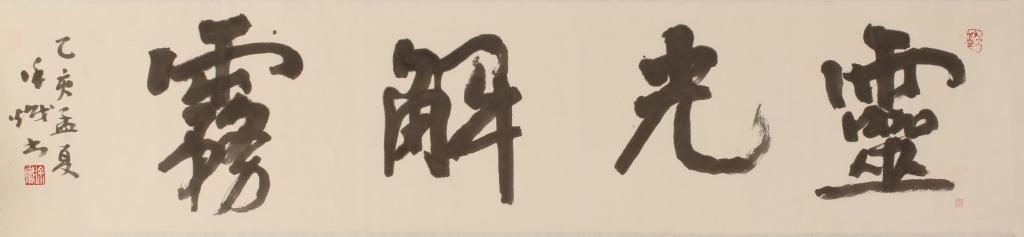 靈光解霧
乙亥孟夏